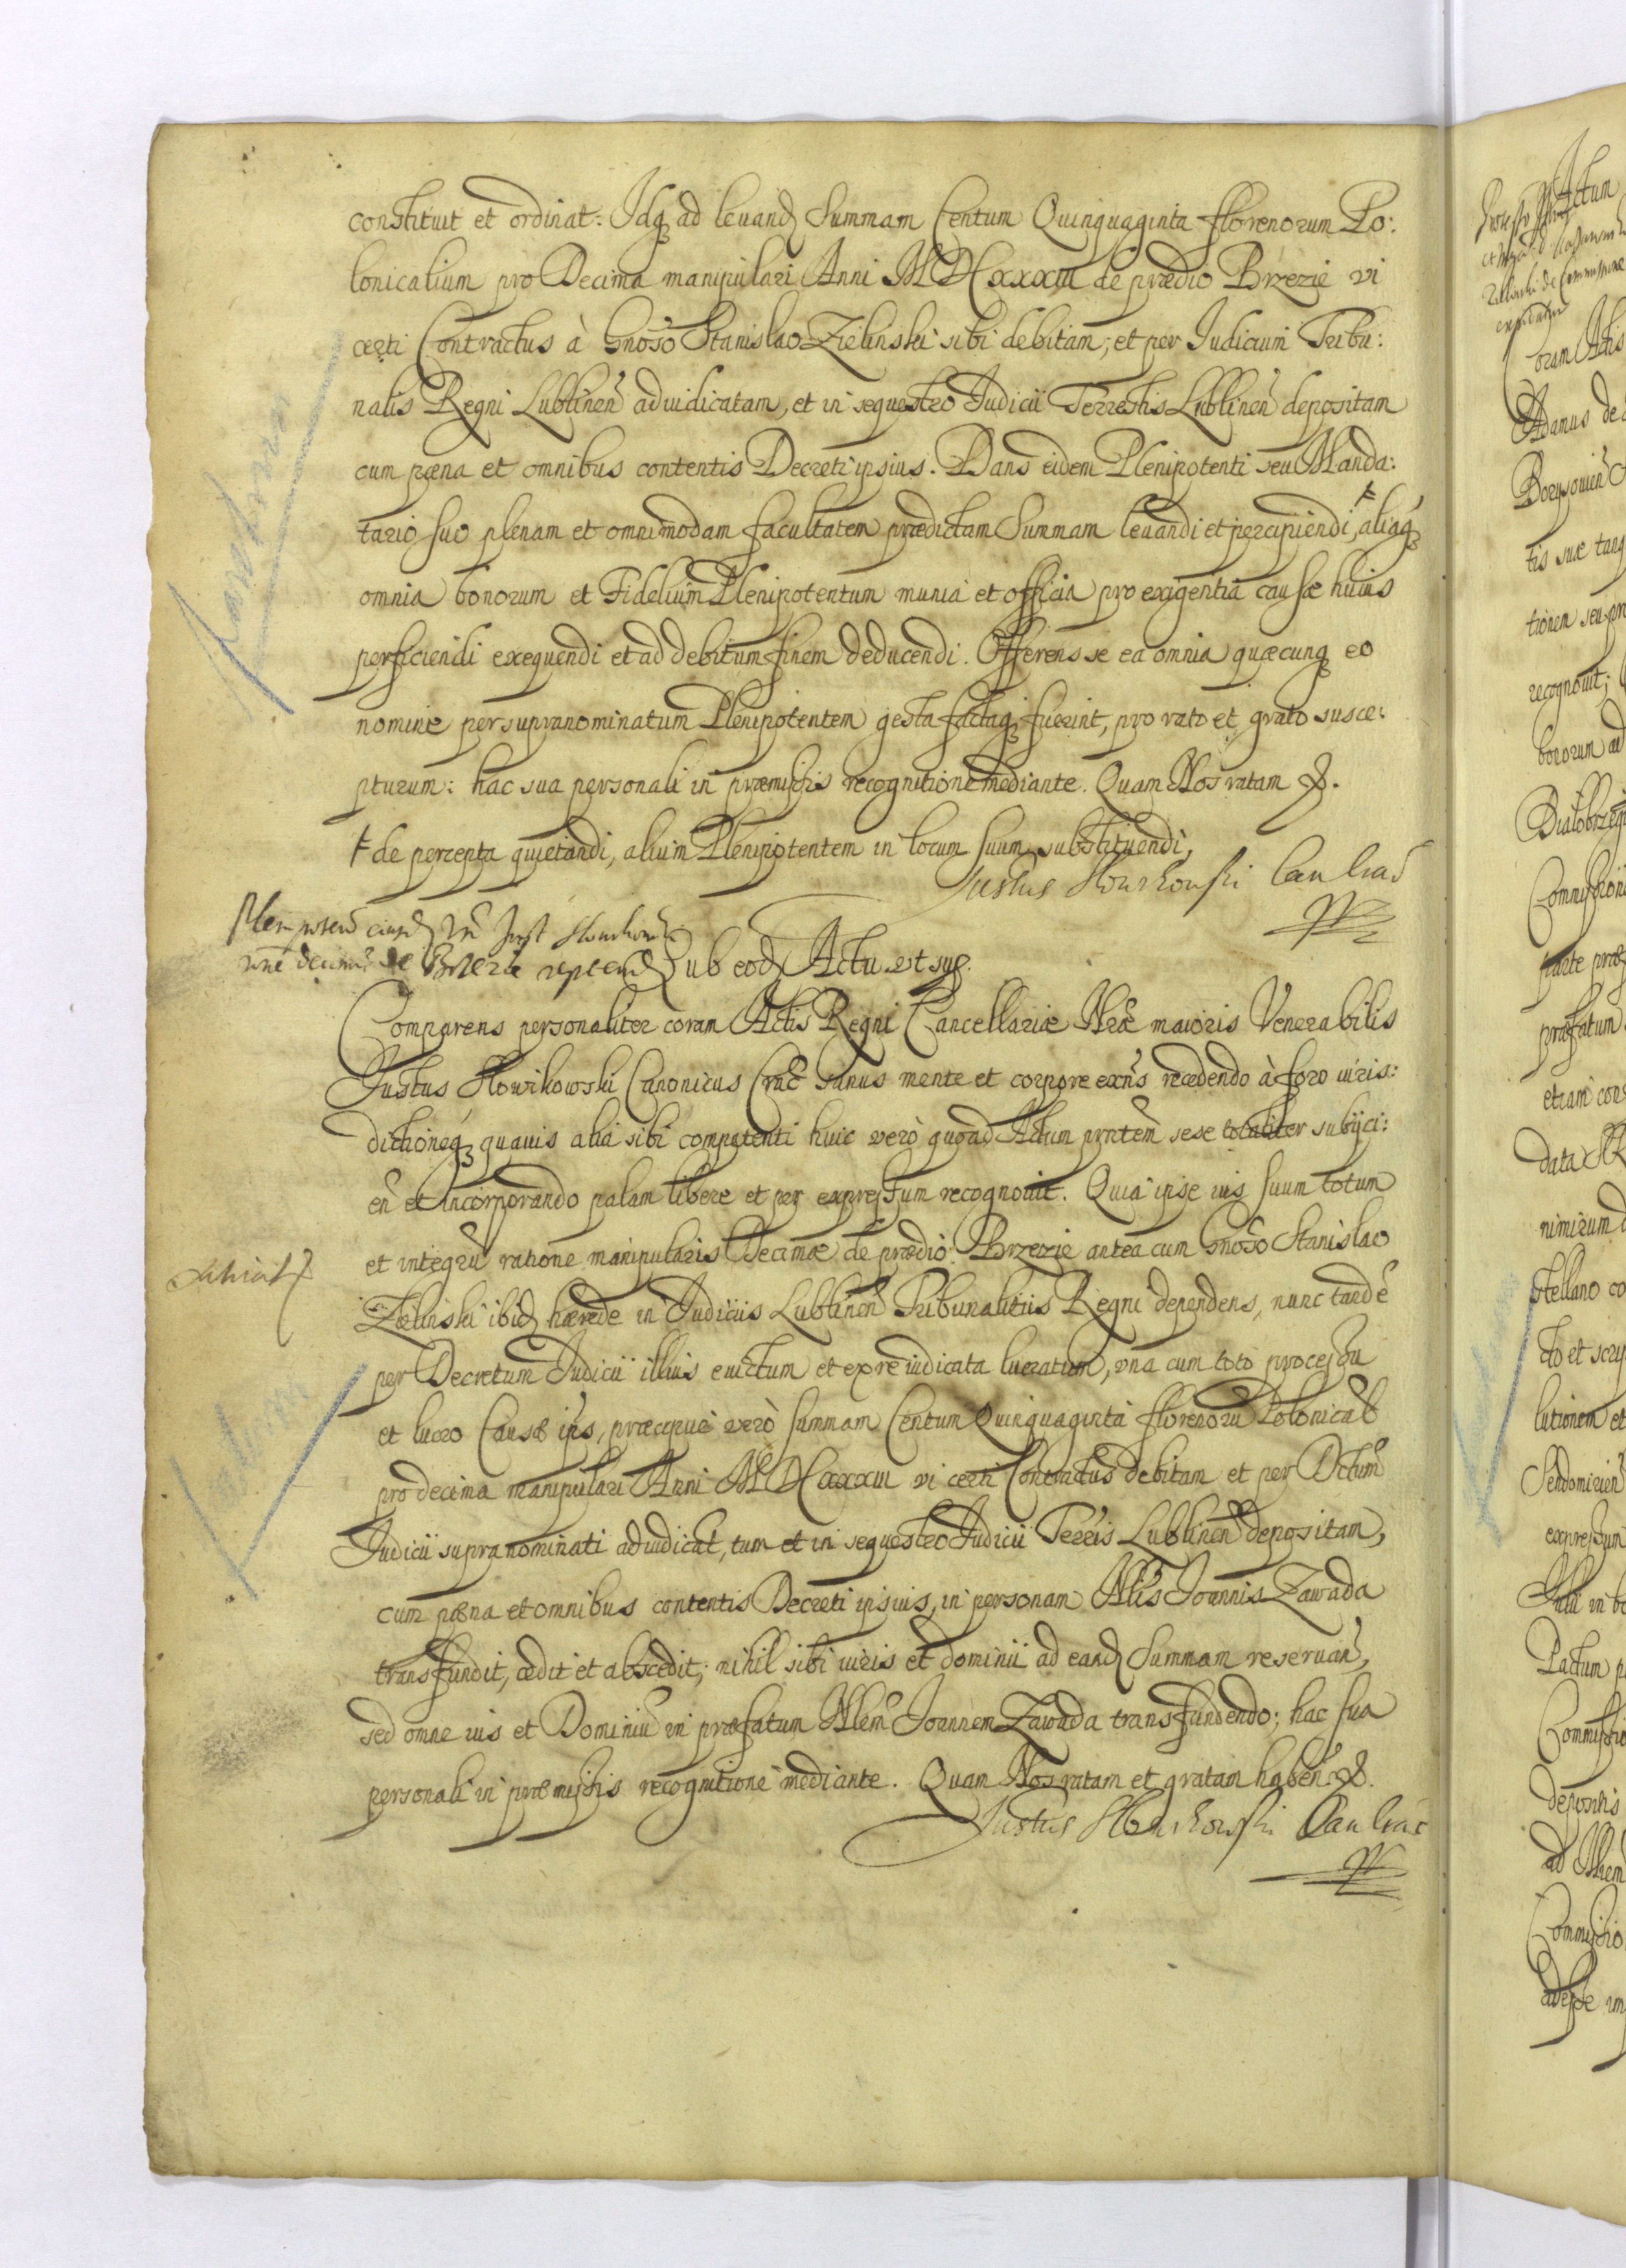 constituit et ordinat: Idq ad levand Summam Centum Quinquaginta florenorum Po:
lonicalium pro Decima manipulari Anni MDCxxxiii de prædio Brzezie vi
certi Contractus à Gnoso Stanislao Zielinski sibi debitam; et per Iudicium Tribu:
nalis Regni Lublinen adiudicatam, et in sequestro Iudicii Terrestris Lublinen depositam
cum pæna et omnibus contentis Decreti ipsius. Dans eidem Plenipotenti seu Manda:
tario suo plenam et omnimodam facultatem prædictam Summam levandi et percipiendi, ⱡ aliaq
omnia bonorum et Fidelium Plenipotentum munia et officia pro exigentia causæ huius
perficiendi exequendi et ad debitum finem deducendi. Offerens se ea omnia quæcunq eo
nomine per supranominatum Plenipotentem gesta factaq fuerint, pro rato et grato susce:
pturum: hac sua personali in præmissis recognitione mediante. Quam Nos ratam &.
ⱡ de percepta quietandi, alium Plenipotentem in locum suum substituendi,
Iustus Slowikowski Can Crac
mp
Sub eod Actu ut sup.
Comparens personaliter coram Actis Regni Cancellariæ Nræ maioris Venerabilis
Iustus Slowikowski Canonicus Crac sanus mente et corpore exns recedendo à foro iuris:
dictioneq quavis alia sibi competenti huic verò quoad Actum prntem sese totaliter subijci:
en et incorporando palam libere et per expressum recognovit. Quia ipse ius suum totum
et integru ratione manipularis Decimæ de prædio Brzezie antea cum Gnoso Stanislao
Zielinski ibid hærede in Iudiciis Lublinen Tribunalitiis Regni dependens, nunc tande
per Decretum Iudicii illius evictum et ex re iudicata lucratum, una cum toto processu
et lucro Causæ ips, præcipuè verò summam Centum Quinquaginta florenoru Polonical
pro decima manipulari Anni MDCxxxiii vi certi Contractus debitam et per Dctum
Iudicii supranominati adiudicat, tum et in sequestro Iudicii Terris Lublinen depositam,
cum pæna et omnibus contentis Decreti ipsius, in personam Nlis Ioannis Zawada
transfundit, cedit et abscedit; nihil sibi iuris et dominii ad eand Summam reservan,
sed omne ius et Dominiu in præfatum Nlem Ioannem Zawada transfundendo; hac sua
personali in præmissis recognitione mediante. Quam Nos ratam et gratam haben &.
Iustus Slowikowski Can Crac
mp